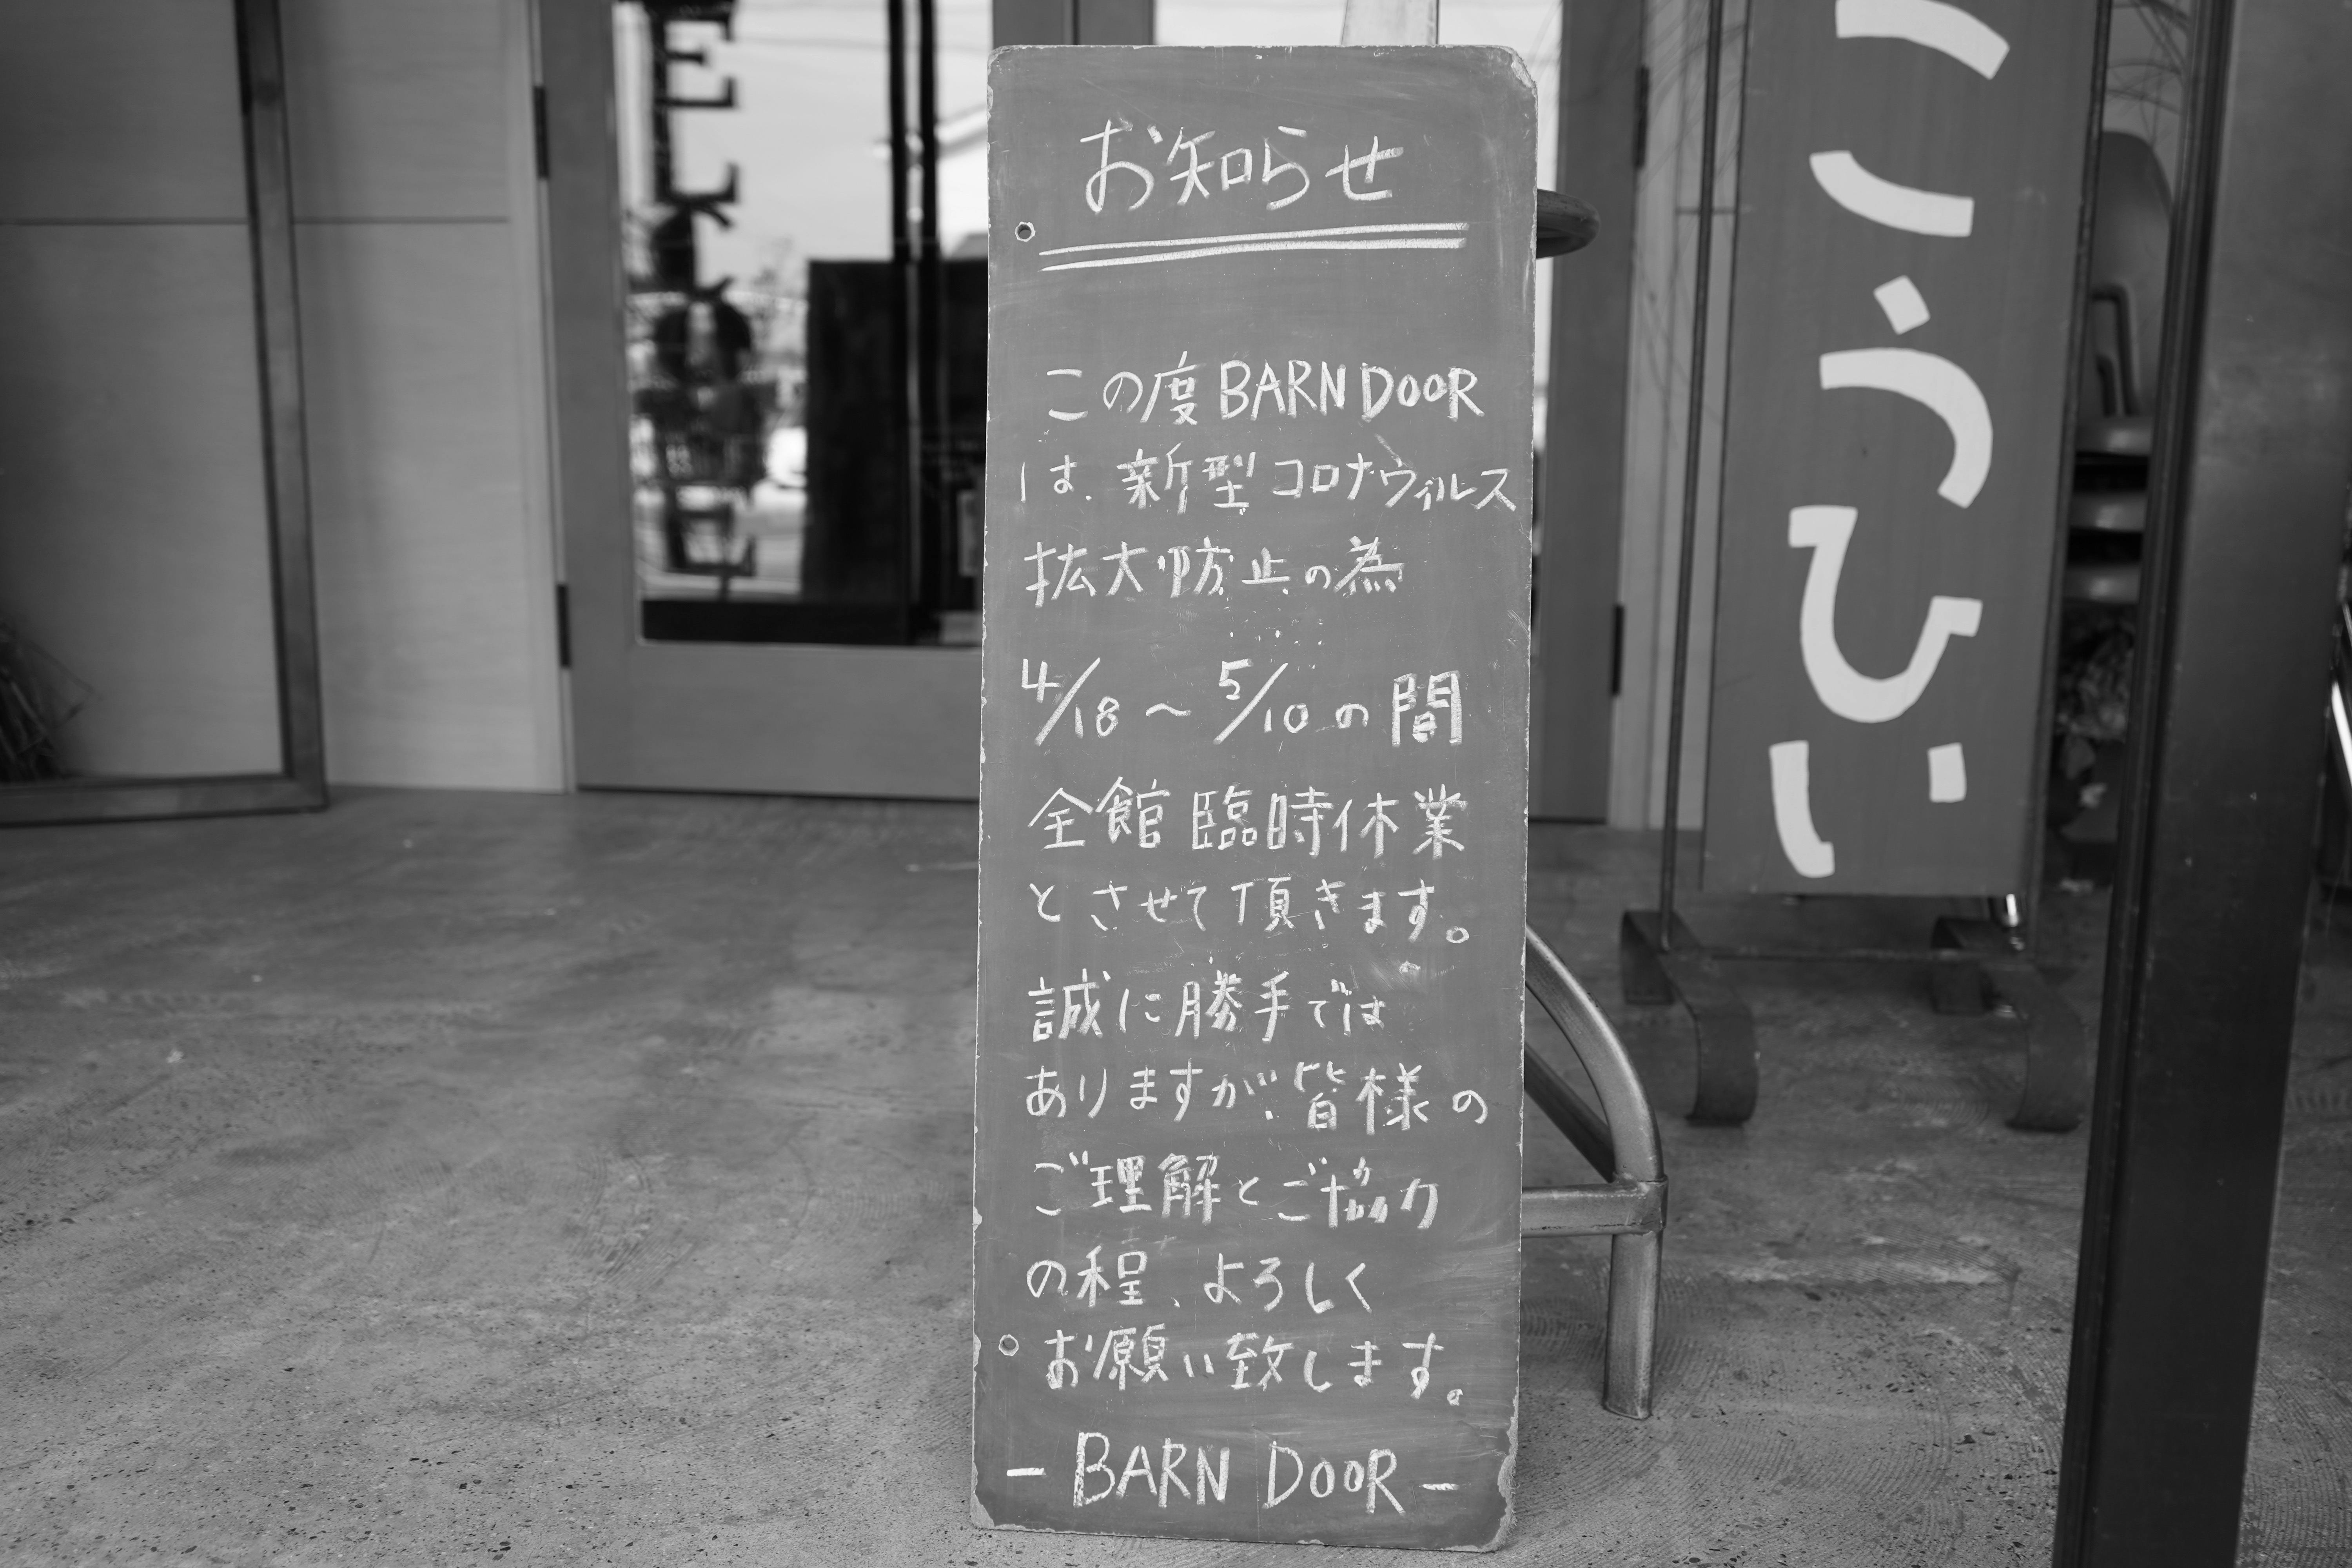 お知らせ
この度BARN DOOR
は、新型コロナウィルス
拡大防止の為
4/18〜5/10の間
全館臨時休業
とさせて頂きます。
誠に勝手では
ありますが皆様の
ご理解とご協力
の程、よろしく
お願い致します。
- BARN DOOR -
こうひい